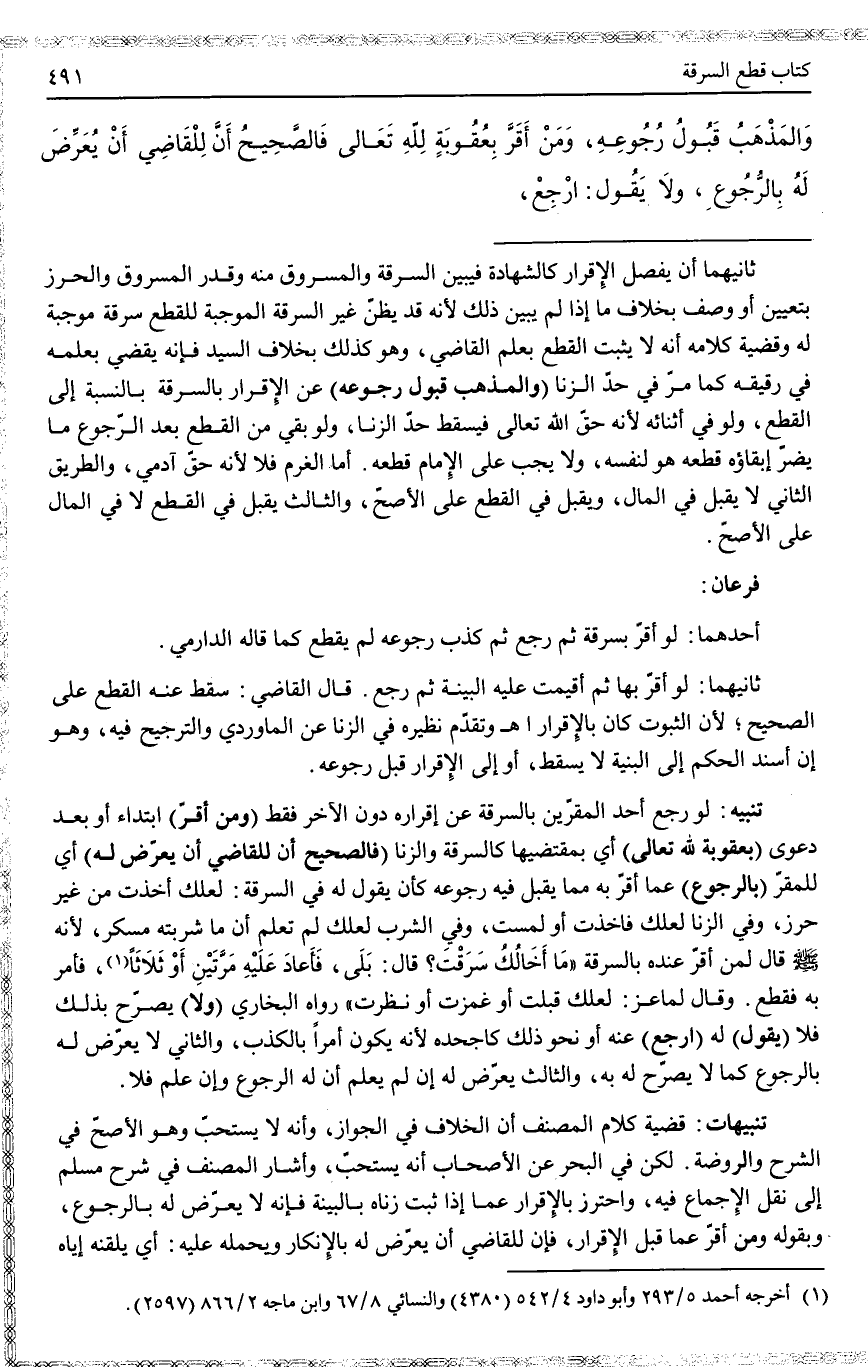 كتاب قطع السرقة
٤٩١
وَالمَذْهَبُ قَبُولُ رُجُوعِهِ، وَمَنْ أَقَرَّ بِعُقُوبَةٍ لِلّهِ تَعَالى فَالصَّحِيحُ أَنَّ لِلْقَاضِي أَنْ يُعَرِّضَ
لَهُ بِالرُّجُوعِ، ولاَ يَقُول: ارْجِعْ،
ثانيهما أن يفصل الإقرار كالشهادة فيبين السرقة والمسروق منه وقدر المسروق والحرز
بتعيين أو وصف بخلاف ما إذا لم يبين ذلك لأنه قد يظنّ غير السرقة الموجبة للقطع سرقة موجبة
له وقضية كلامه أنه لا يثبت القطع بعلم القاضي، وهو كذلك بخلاف السيد فإنه يقضي بعلمه
في رقيقه كما مرّ في حدّ الزنا (والمذهب قبول رجوعه) عن الإقرار بالسرقة بالنسبة إلى
القطع، ولو في أثنائه لأنه حقّ الله تعالى فيسقط حدّ الزنا، ولو بقي من القطع بعد الرّجوع ما
يضرّ إبقاؤه قطعه هو لنفسه، ولا يجب على الإمام قطعه. أما الغرم فلا لأنه حقّ آدمي، والطريق
الثاني لا يقبل في المال، ويقبل في القطع على الأصحّ، والثالث يقبل في القطع لا في المال
على الأصحّ.
فرعان:
أحدهما: لو أقرّ بسرقة ثم رجع ثم كذب رجوعه لم يقطع كما قاله الدارمي.
ثانيهما: لو أقرّ بها ثم أقيمت عليه البينة ثم رجع. قال القاضي: سقط عنه القطع على
الصحيح؛ لأن الثبوت كان بالإقرار ا هـ وتقدّم نظيره في الزنا عن الماوردي والترجيح فيه، وهو
إن أسند الحكم إلى البنية لا يسقط، أو إلى الإقرار قبل رجوعه.
تنبيه: لو رجع أحد المقرّين بالسرقة عن إقراره دون الآخر فقط (ومن أقرّ) ابتداء أو بعد
دعوى (بعقوبة لله تعالى) أي بمقتضيها كالسرقة والزنا (فالصحيح أن للقاضي أن يعرّض له) أي
للمقرّ (بالرجوع) عما أقرّ به مما يقبل فيه رجوعه كأن يقول له في السرقة: لعلك أخذت من غير
حرز، وفي الزنا لعلك فاخذت أو لمست، وفي الشرب لعلك لم تعلم أن ما شربته مسكر، لأنه
ﷺ قال لمن أقرّ عنده بالسرقة «مَا أَخَالُكُ سَرَقْتَ؟ قال: بَلَى، فَأَعادَ عَلَيْهِ مَرَّتَيْنِ أَوْ ثَلاَثَاً(١)، فأمر
به فقطع. وقال لماعز: لعلك قبلت أو غمزت أو نظرت» رواه البخاري (ولا) يصرّح بذلك
فلا (يقول) له (ارجع) عنه أو نحو ذلك كاجحده لأنه يكون أمراً بالكذب، والثاني لا يعرّض له
بالرجوع كما لا يصرّح له به، والثالث يعرّض له إن لم يعلم أن له الرجوع وإن علم فلا.
تنبيهات: قضية كلام المصنف أن الخلاف في الجواز، وأنه لا يستحبّ وهو الأصحّ في
الشرح والروضة. لكن في البحر عن الأصحاب أنه يستحبّ، وأشار المصنف في شرح مسلم
إلى نقل الإجماع فيه، واحترز بالإقرار عما إذا ثبت زناه بالبينة فإنه لا يعرّض له بالرجوع،
وبقوله ومن أقرّ عما قبل الإقرار، فإن للقاضي أن يعرّض له بالإنكار ويحمله عليه: أي يلقنه إياه
(١) أخرجه أحمد ٢٩٣/٥ وأبو داود ٥٤٢/٤ (٤٣٨٠) والنسائي ٦٧/٨ وابن ماجه ٨٦٦/٢ (٢٥٩٧).